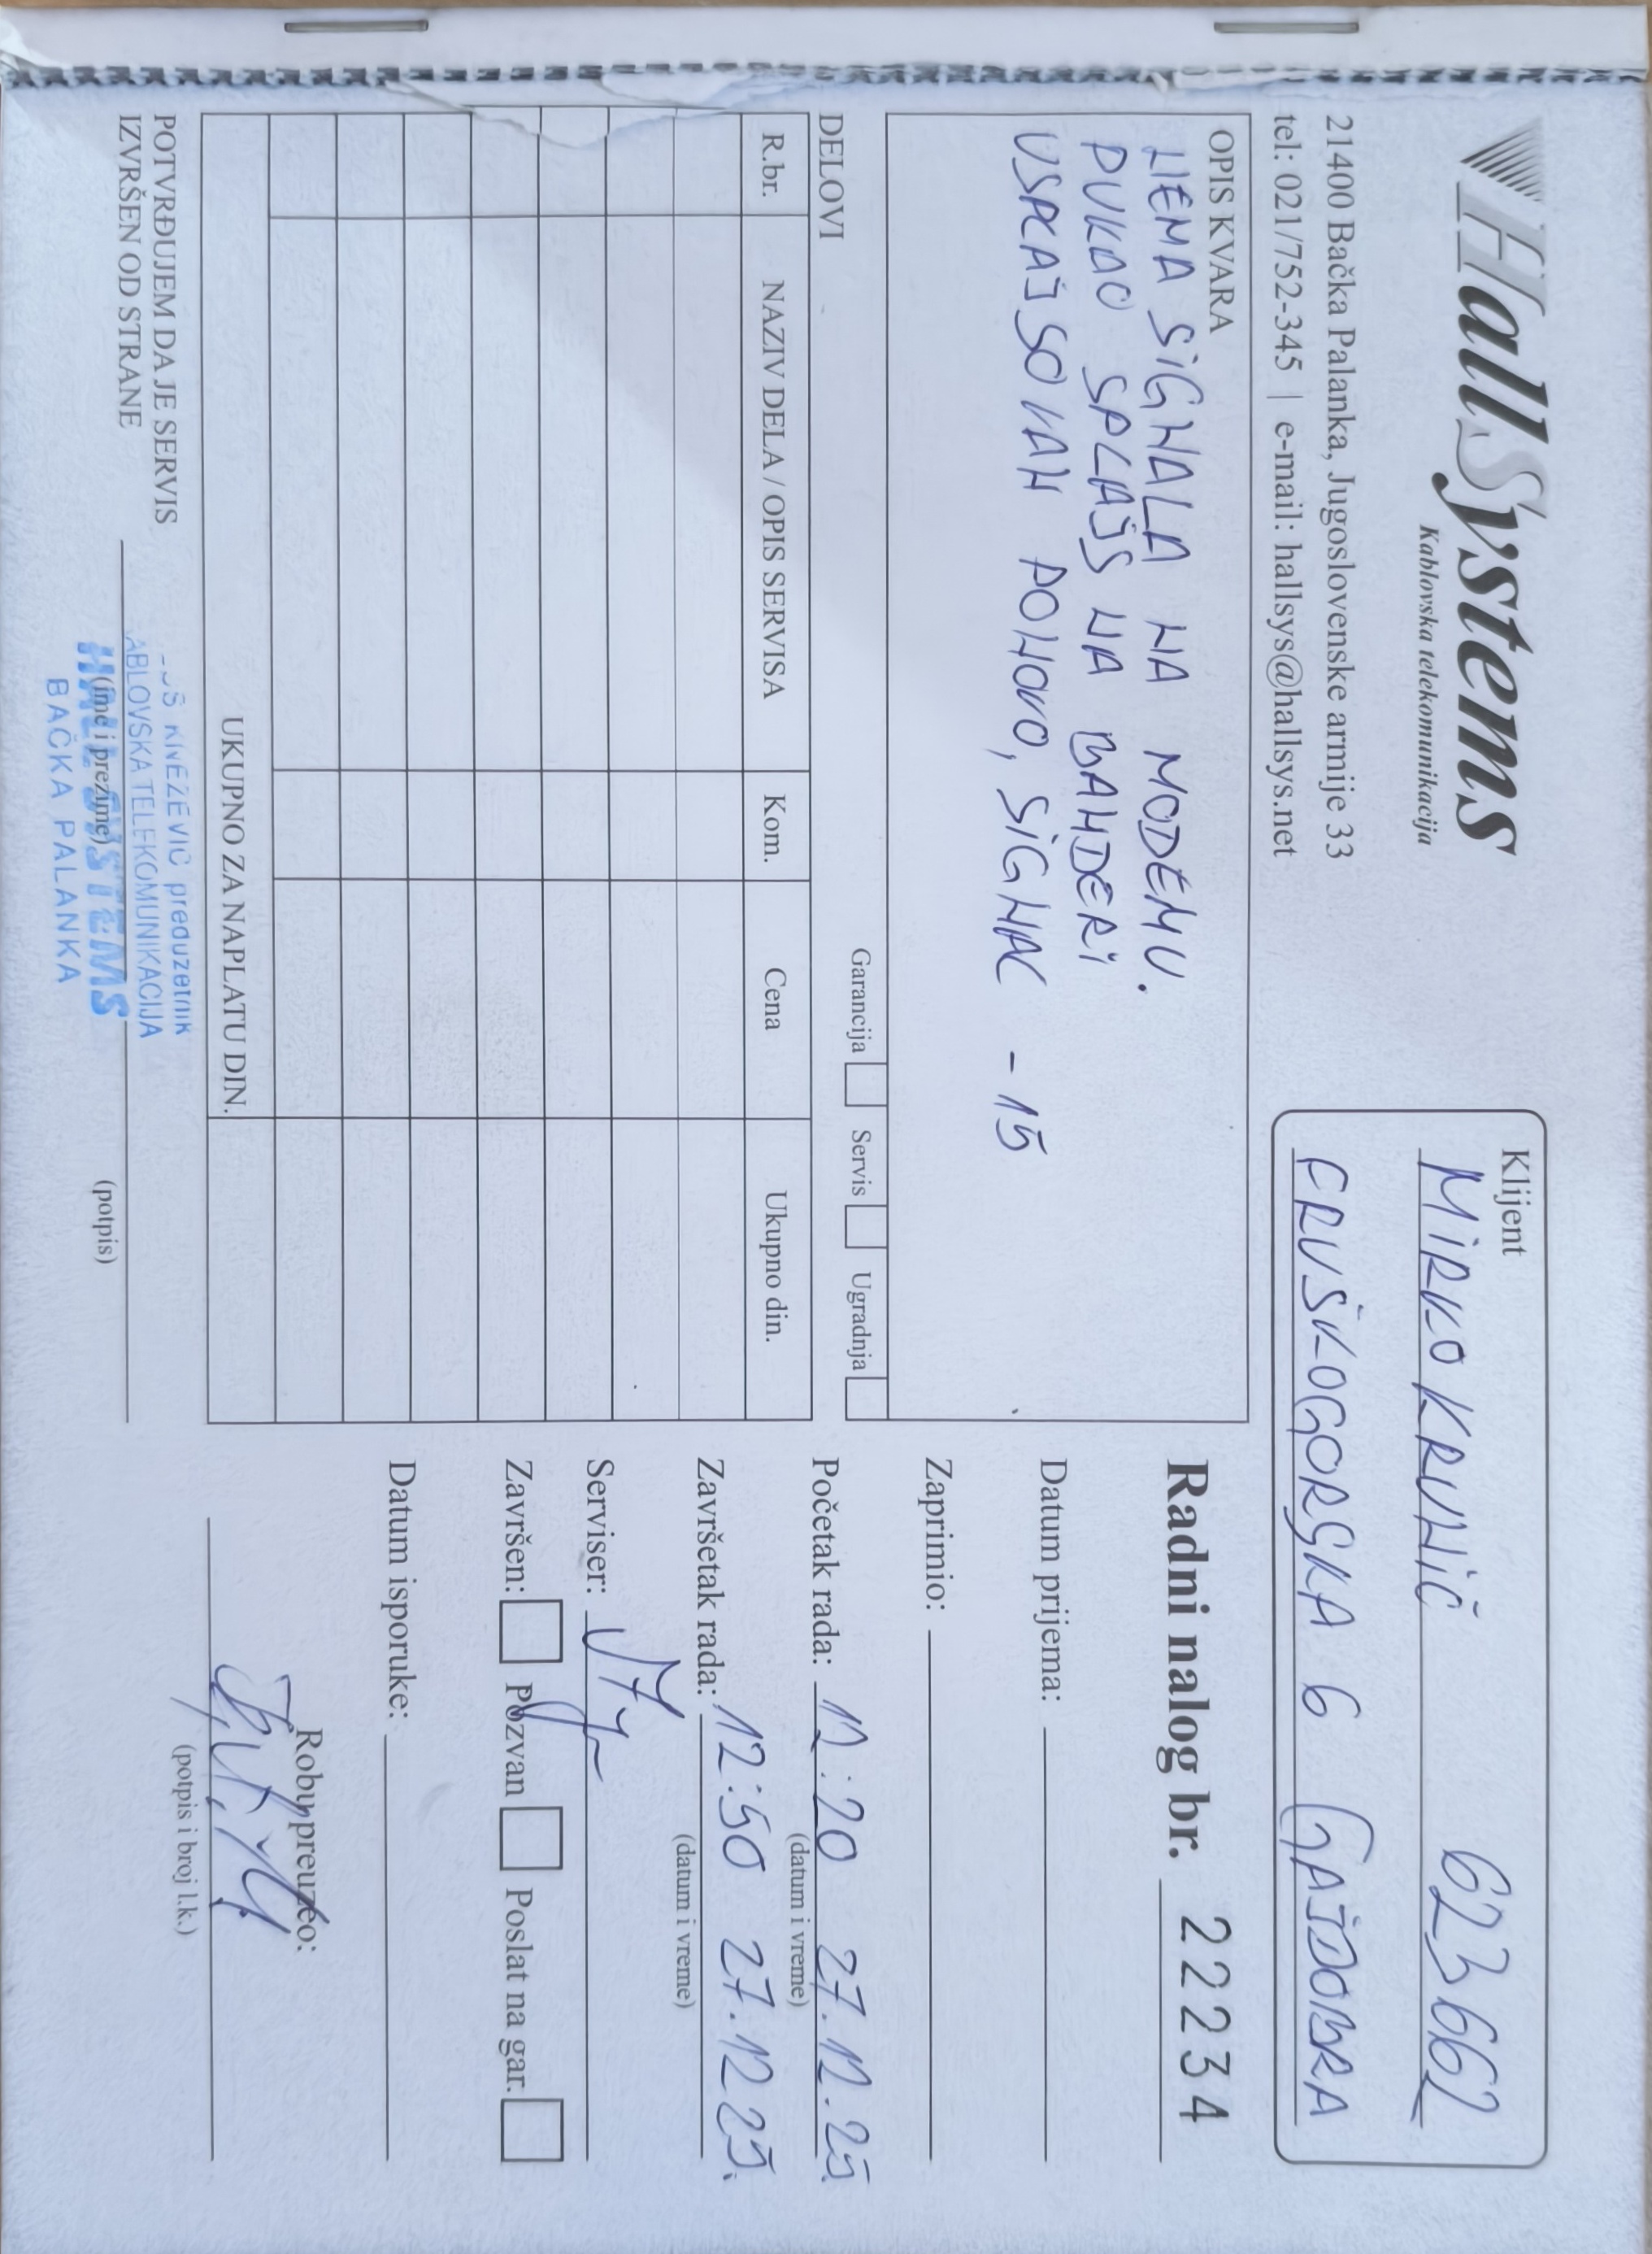 HallSystems
Kablovska telekomunikacija
21400 Bačka Palanka, Jugoslovenske armije 33
tel: 021/752-345 | e-mail: hallsys@hallsys.net
Klijent
MIRKO KRUNIĆ 623662
FRUŠKOGORSKA 6 GAJDOBRA
OPIS KVARA
NEMA SIGNALA NA MODEMU.
PUKAO SPLAJS NA BANDERI
USPLAJSOVAN PONOVO, SIGNAL - 15
Garancija Servis Ugradnja
DELOVI
R.br. NAZIV DELA / OPIS SERVISA Kom. Cena Ukupno din.
UKUPNO ZA NAPLATU DIN.
POTVRĐUJEM DA JE SERVIS
IZVRŠEN OD STRANE
(ime i prezime) (potpis)
KNEŽEVIĆ preduzetnik
ABLOVSKA TELEKOMUNIKACIJA
HALL SYSTEMS
BAČKA PALANKA
Radni nalog br. 22234
Datum prijema:
Zaprimio:
Početak rada: 12:20 27.12.25.
(datum i vreme)
Završetak rada: 12:50 27.12.25.
(datum i vreme)
Serviser:
Završen: Pozvan Poslat na gar.
Datum isporuke:
Robu preuzeo:
(potpis i broj l.k.)